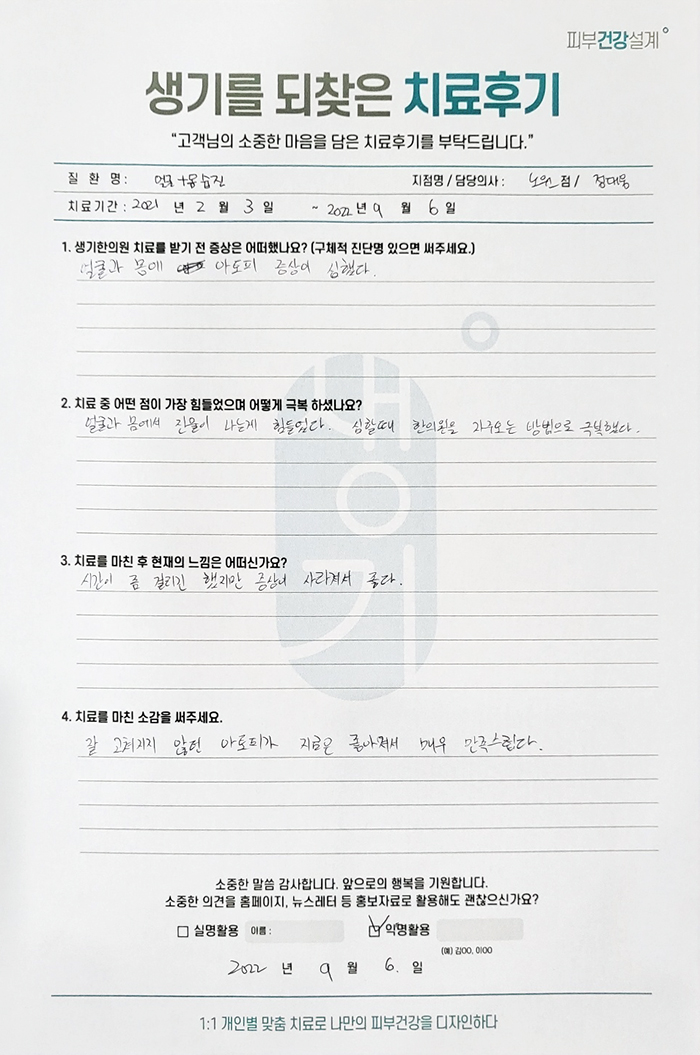 피부건강설계
생기를 되찾은 치료후기
“고객님의 소중한 마음을 담은 치료후기를 부탁드립니다.”
질 환 명 : 얼굴+몸습진 지점명 / 담당의사 : 노원점 / 정대웅
치료기간 : 2021 년 2 월 3 일 ~ 2022 년 9 월 6 일
1. 생기한의원 치료를 받기 전 증상은 어떠했나요? (구체적 진단명 있으면 써주세요.)
얼굴과 몸에 아토피 증상이 심했다.
2. 치료 중 어떤 점이 가장 힘들었으며 어떻게 극복 하셨나요?
얼굴과 몸에서 진물이 나는게 힘들었다. 심할때 한의원을 자주오는 방법으로 극복했다.
3. 치료를 마친 후 현재의 느낌은 어떠신가요?
시간이 좀 걸리긴 했지만 증상이 사라져서 좋다.
4. 치료를 마친 소감을 써주세요.
잘 고쳐지지 않던 아토피가 지금은 좋아져서 매우 만족스럽다.
생기
소중한 말씀 감사합니다. 앞으로의 행복을 기원합니다.
소중한 의견을 홈페이지, 뉴스레터 등 홍보자료로 활용해도 괜찮으신가요?
실명활용 이름 : 익명활용
(예) 김OO, 이OO
2022 년 9 월 6. 일
1:1 개인별 맞춤 치료로 나만의 피부건강을 디자인하다